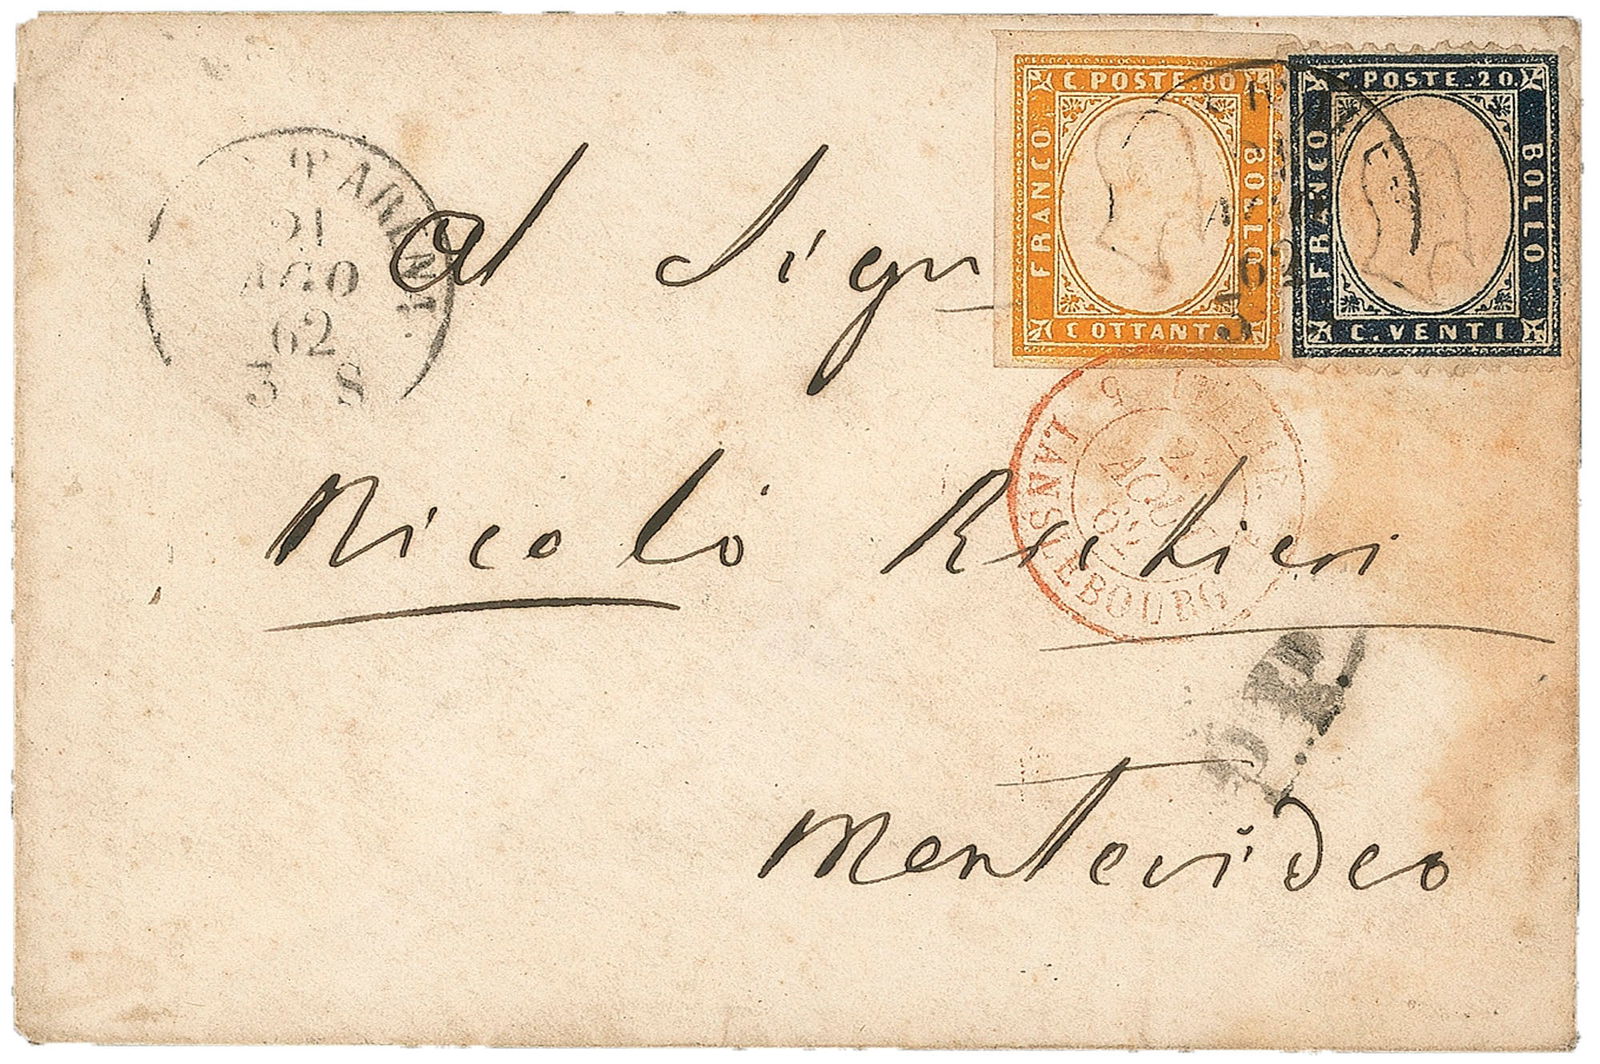 C. POSTE. 80
FRANCO
BOLLO
C OTTANTA
C. POSTE. 20
FRANCO
BOLLO
C. VENTI
62
P. ARENA
21
AGO
62
3 S
Al Sigr
LANSLEBOURG
5
AOUT
62
Nicolò
P.D.
Montevideo